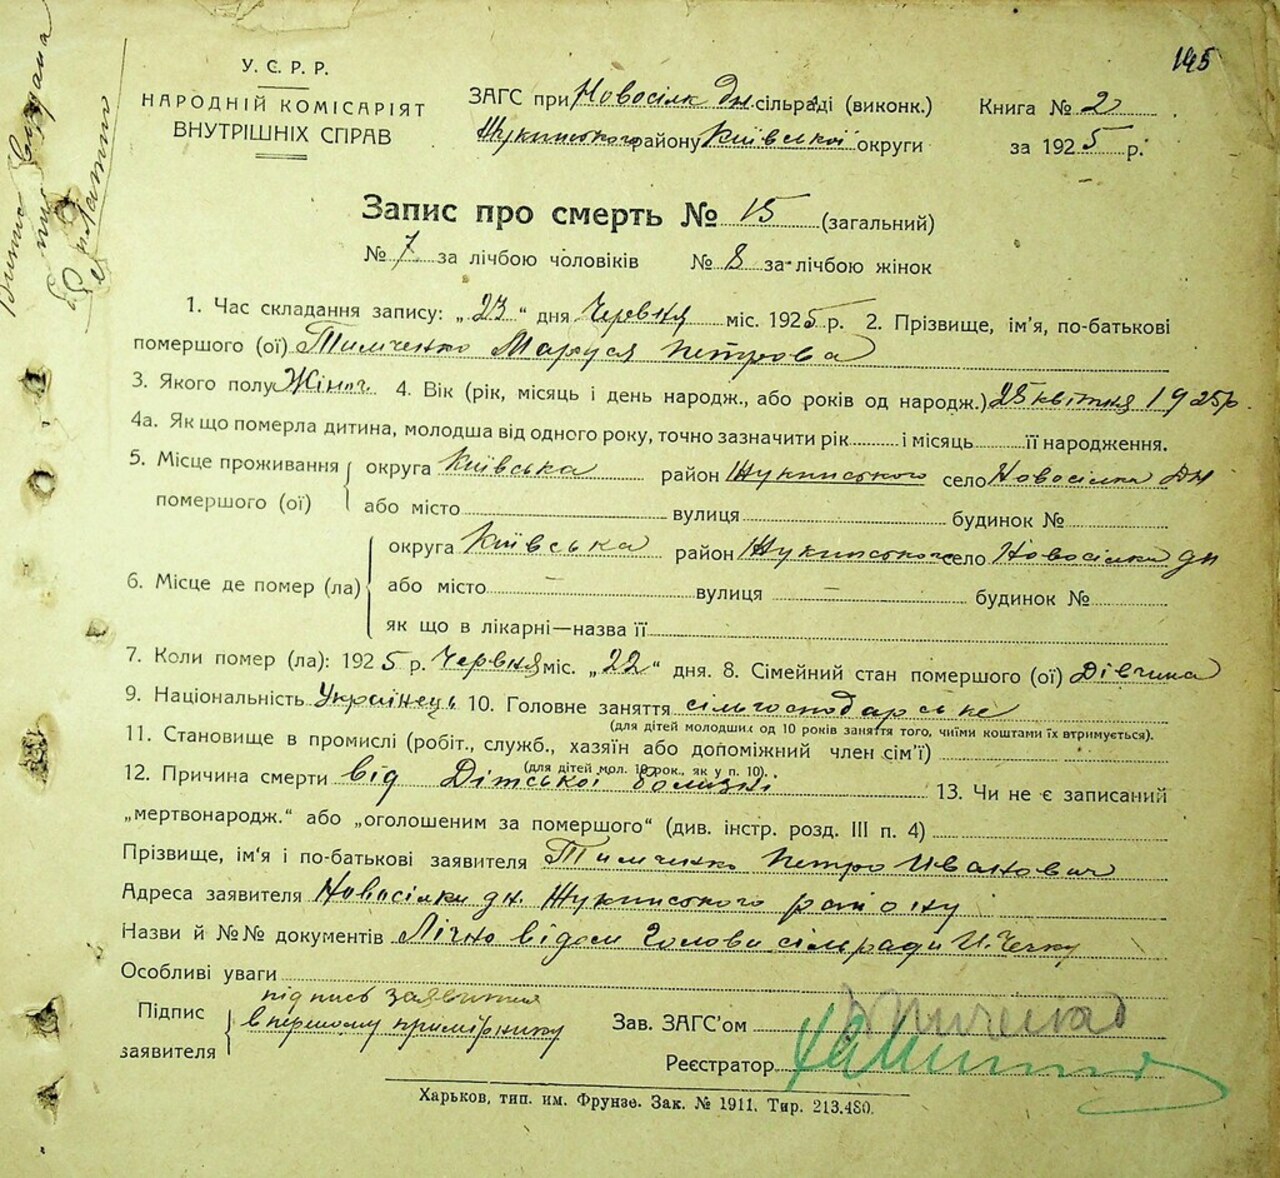 145
У. С. Р. Р.
НАРОДНІЙ КОМІСАРІЯТ
ВНУТРІШНІХ СПРАВ
ЗАГС при Новосілк Дн. сільраді (виконк.)
Жукинського району Київської округи
Книга № 2
за 1925 р.
Запис про смерть № 15 (загальний)
№ 7 за лічбою чоловіків № 8 за лічбою жінок
1. Час складання запису: „23“ дня Червня міс. 1925 р. 2. Прізвище, ім'я, по-батькові
помершого (ої) Тимченко Маруся Петрова
3. Якого полу Жіноч. 4. Вік (рік, місяць і день народж., або років од народж.) 25 квітня 1925р.
4а. Як що померла дитина, молодша від одного року, точно зазначити рік і місяць її народження.
5. Місце проживання помершого (ої) округа Київська район Жукинського село Новосілка Дн
або місто вулиця будинок №
6. Місце де помер (ла) округа Київська район Жукинського село Новосілки дн
або місто — вулиця — будинок №
як що в лікарні—назва її
7. Коли помер (ла): 1925 р. Червня міс. „22“ дня. 8. Сімейний стан помершого (ої) Дівчина
9. Національність Українець 10. Головне заняття сільгосподарське
(для дітей молодших од 10 років заняття того, чиїми коштами їх втримується).
11. Становище в промислі (робіт., служб., хазяїн або допоміжний член сім'ї)
(для дітей мол. 10 рок., як у п. 10).
12. Причина смерти від Дітської болизні 13. Чи не є записаний
„мертвонародж.“ або „оголошеним за помершого“ (див. інстр. розд. III п. 4)
Прізвище, ім'я і по-батькові заявителя Тимченко Петро Иванович
Адреса заявителя Новосілки дн. Жукинського району
Назви й №№ документів Лічно відом Голови сільради И.
Особливі уваги
Підпис заявителя підпись заявителя
в першому примірнику
Зав. ЗАГС'ом
Реєстратор
Харьков, тип. им. Фрунзе. Зак. № 1911. Тир. 213.480.